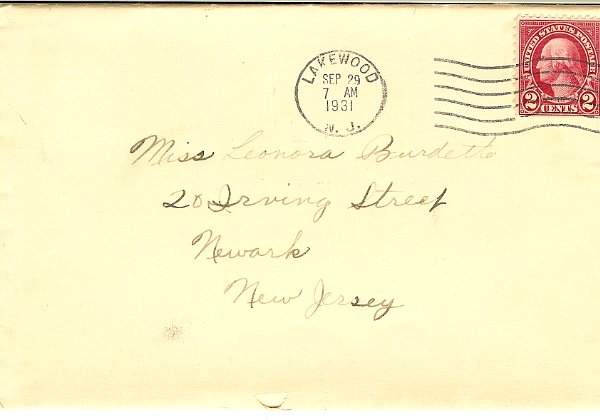 LAKEWOOD
SEP 29
7 AM
1931
N. J.
UNITED STATES POSTAGE
2 CENTS 2
Miss Leonora Burdette
20 Irving Street
Newark
New Jersey